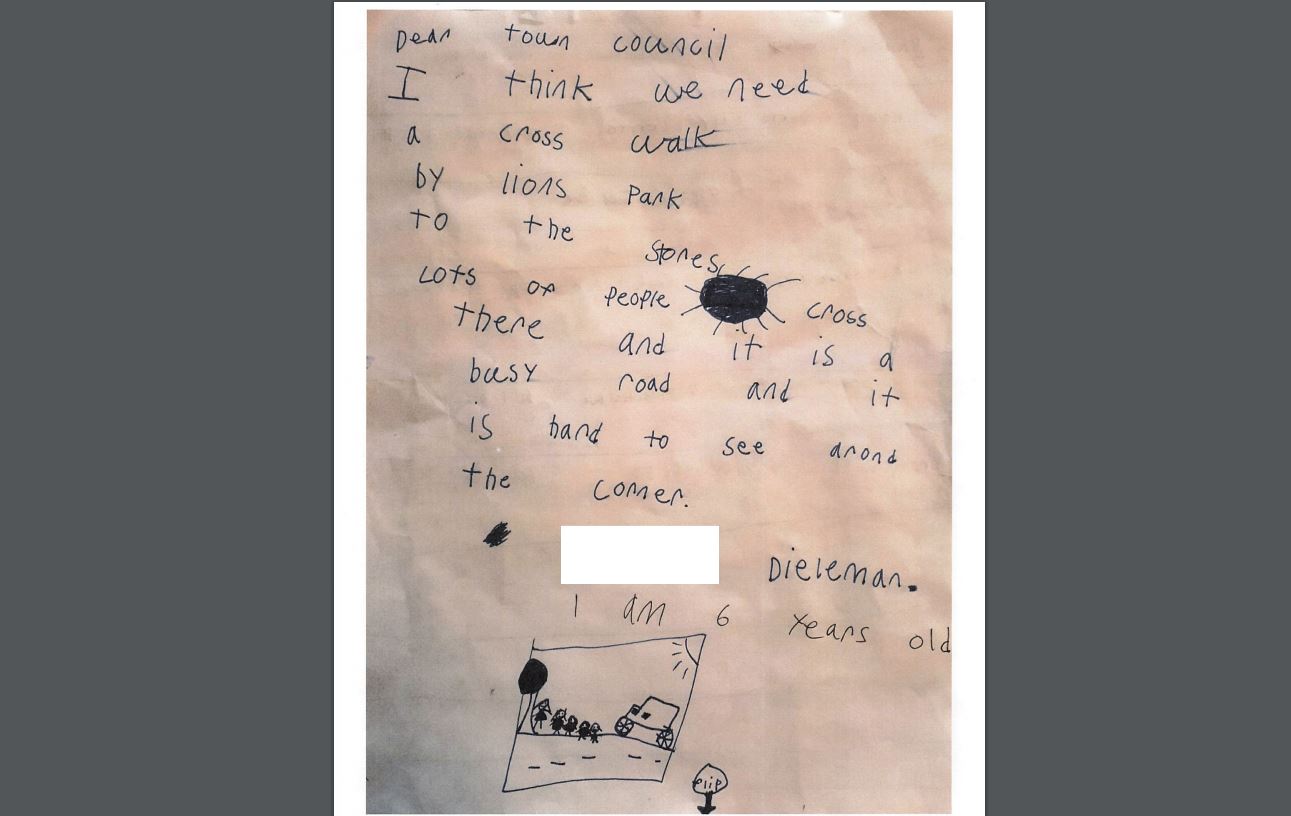 Dear town council
I think we need
a cross walk
by lions Park
to the stores
Lots of people cross
there and it is a
busy road and it
is hard to see arond
the corner.
Dieleman.
I am 6 years old